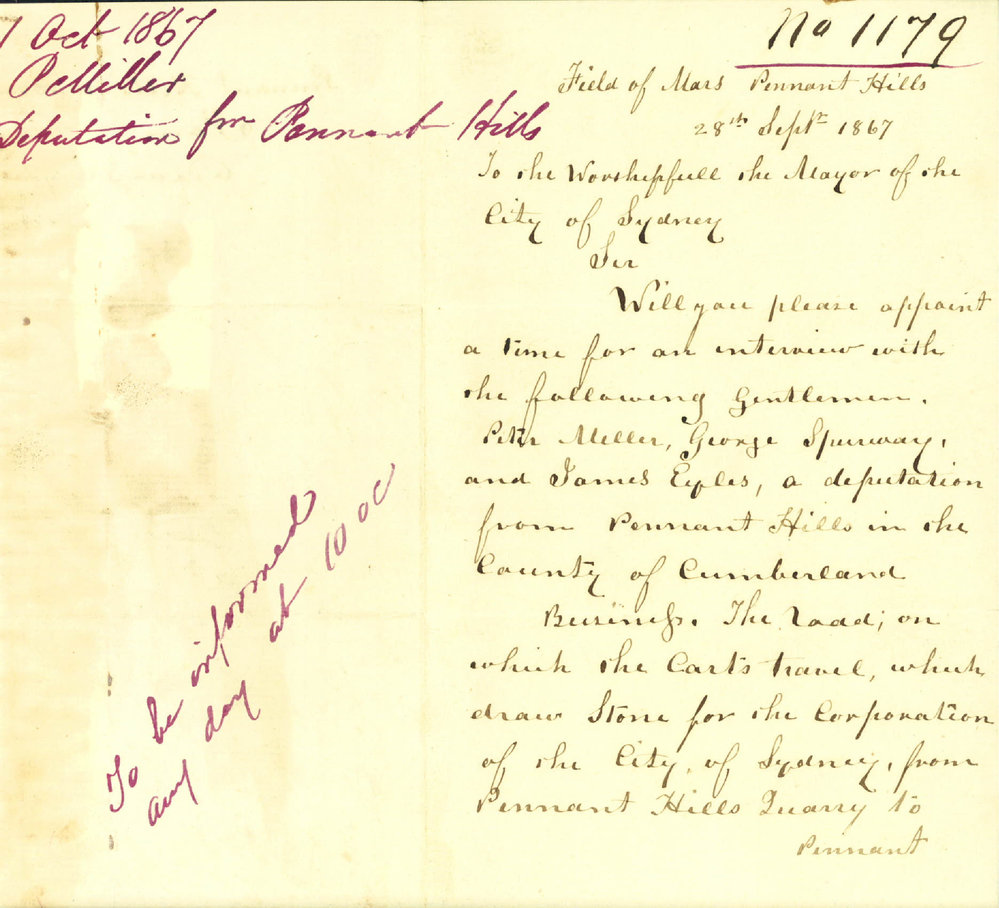 1 Oct 1867
P Miller
Deputation for Pennant Hills
To be informed
any day at 10 oc
No 1179
Field of Mars Pennant Hills
28th Septr 1867
To the Worshipfull the Mayor of the
City of Sydney
Sir
Will you please appoint
a time for an interview with
the following Gentlemen.
Peter Miller, George Spurway,
and James Eyles, a deputation
from Pennant Hills in the
County of Cumberland
Business. The road; on
which the Carts travel, which
draw Stone for the Corporation
of the City, of Sydney, from
Pennant Hills Quarry to
Pennant